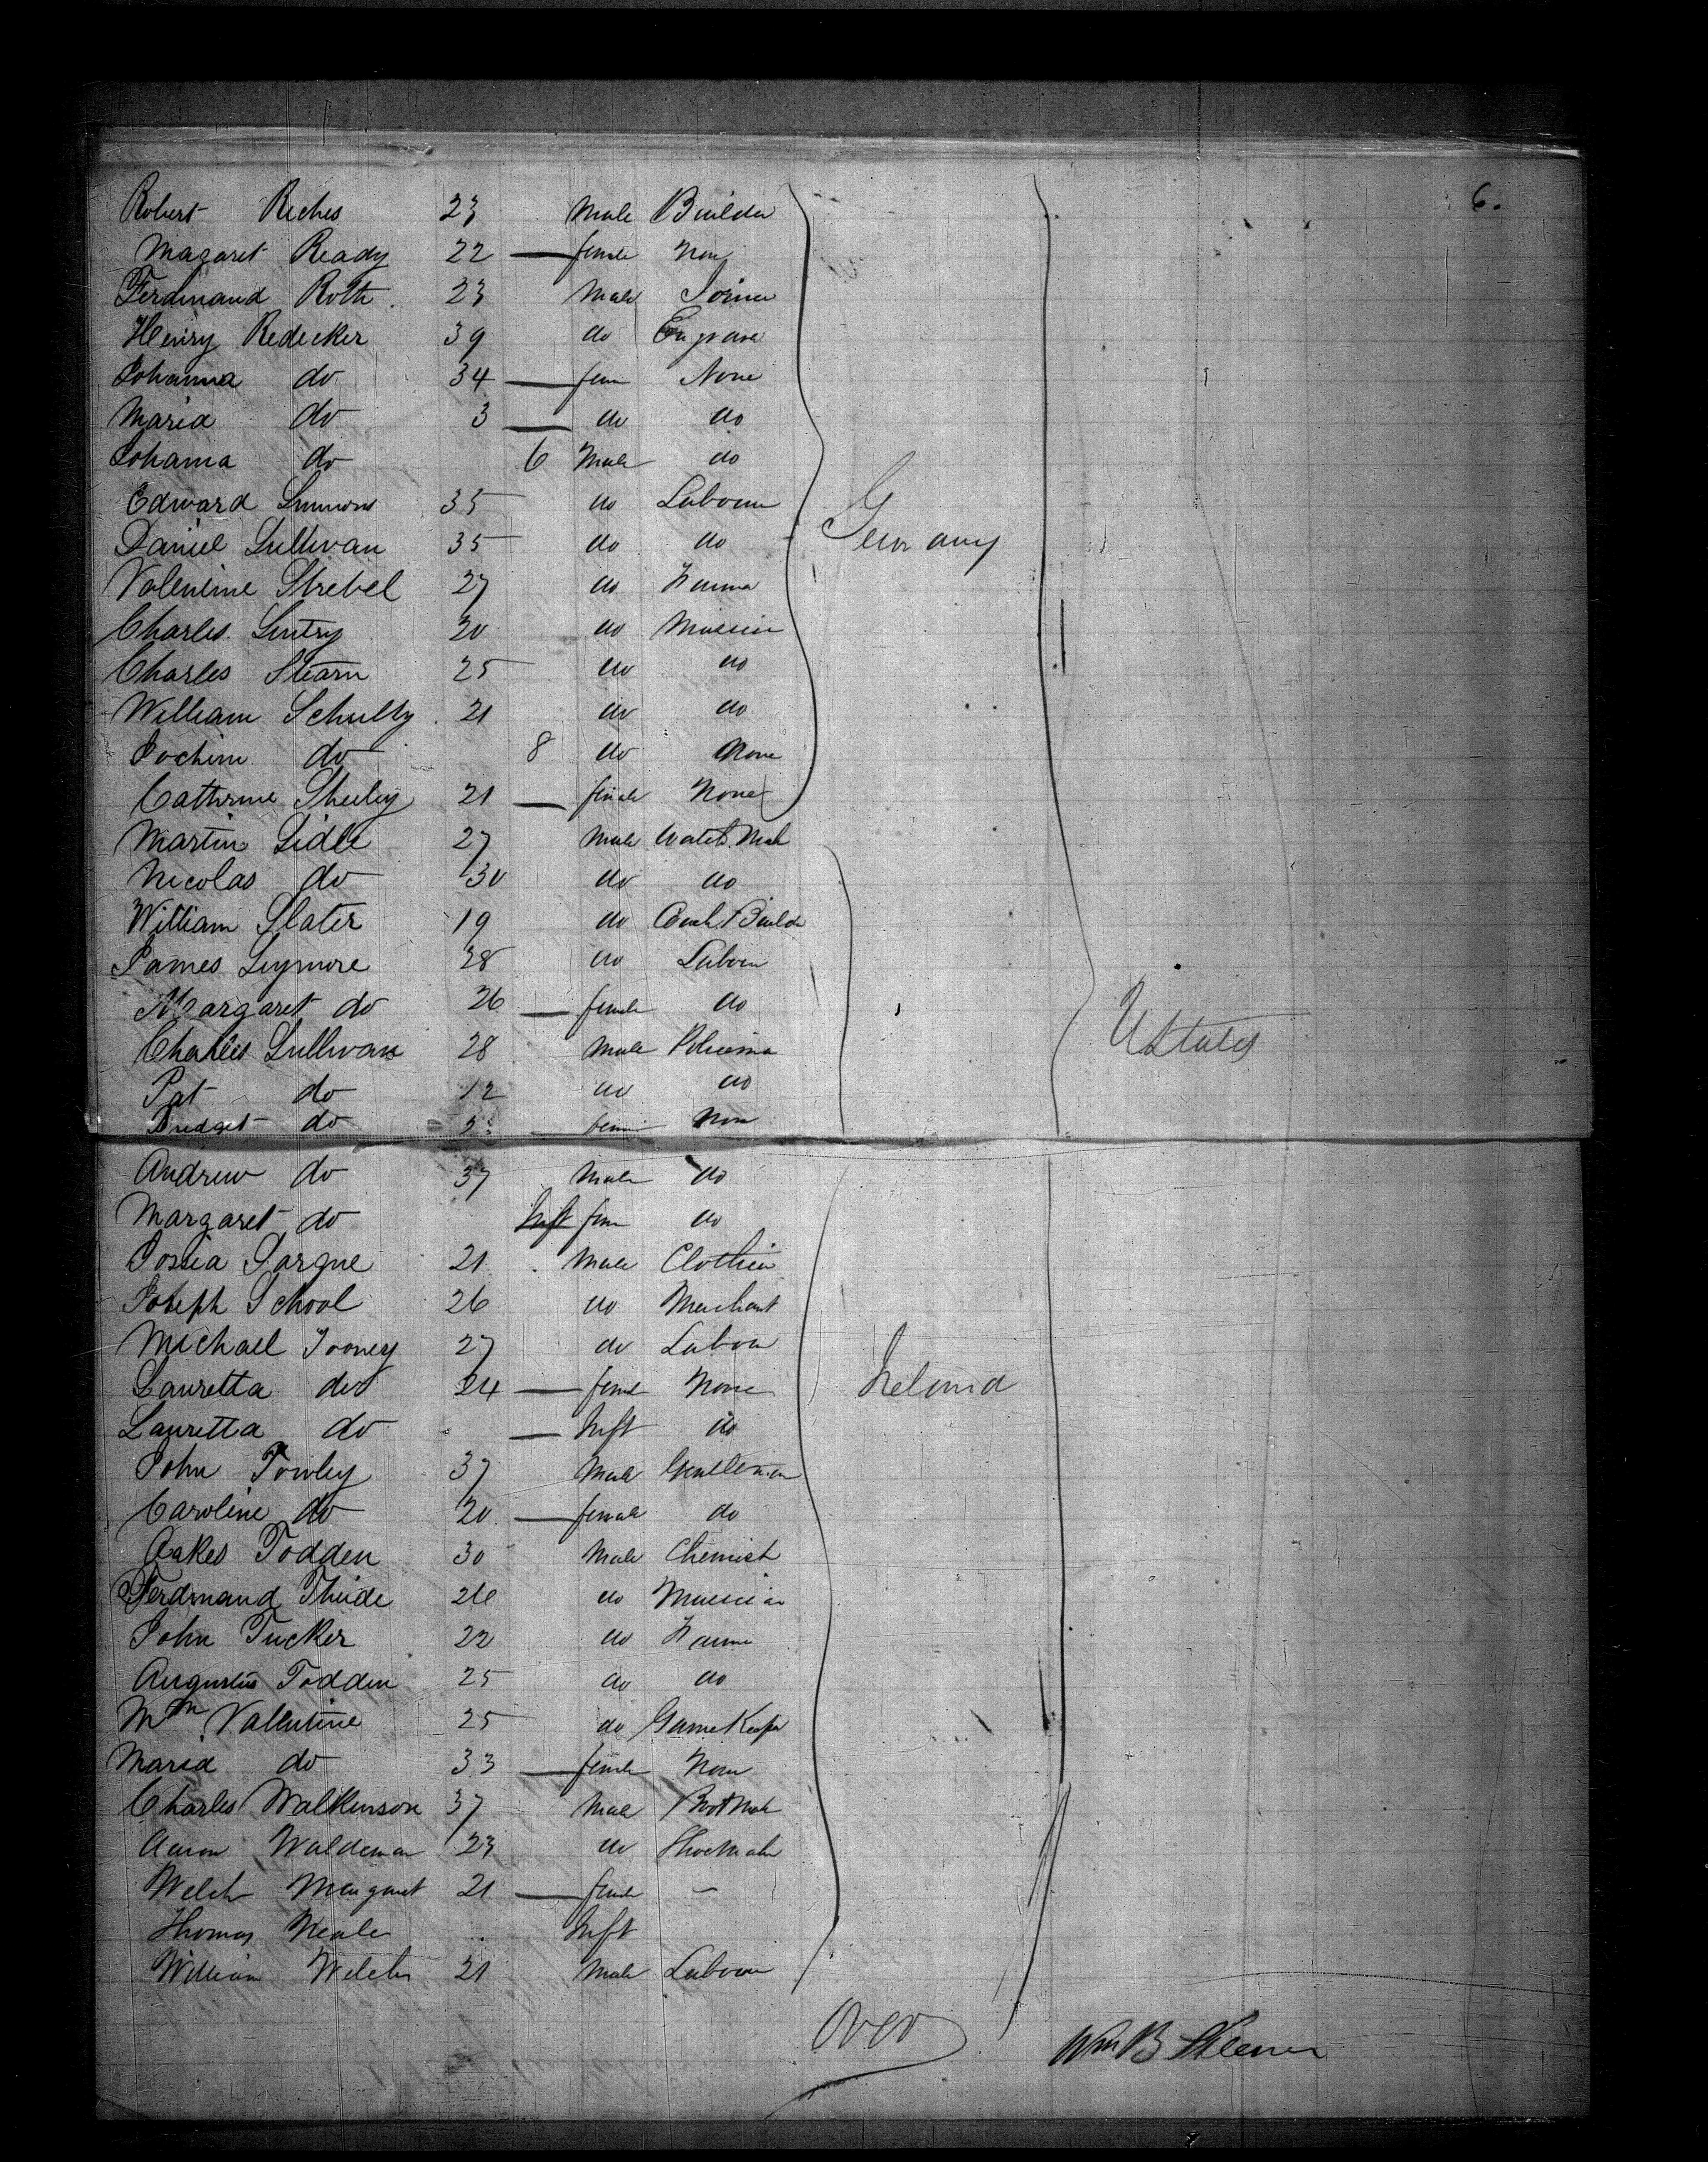 6.
Robert Riches 23 Male Builder
Magaret Ready 22 — female Non
Ferdinand Roth 23 Male Joiner
Henry Redecker 39 do Engraver
Johanna do 34 — fem None
Maria do 3 — do do
Johanna do 6 Male do
Edward Simmons 35 do Labourer
Daniel Sullivan 35 do do
Valentine Strebel 27 do Farmer
Charles 20 do Musician
Charles Stearn 25 do do
William Schultz 21 do do
Jochim do 8 do None
Cathrine 21 — female None
Martin Sidle 27 Male Watch Mak
Nicolas do 30 do do
William Slater 19 do Coach Builder
James Seymore 28 do Labour
Margaret do 26 — female do
Charles Sullivan 28 Male Policeman
Pat do 12 do do
Bridget do — fem Non
Andrew do 37 Male do
Margaret do Inft fem do
21 Male Clothier
Joseph School 26 do Merchant
Michael Tooney 27 do Labour
Lauretta do 24 — feml None
Lauretta do — Inft do
John Towley 37 Male Gentleman
Caroline do 20 — female do
Oakes Todden 30 Male Chemist
Ferdinand Thiede do Musician
John Tucker 22 do Farmer
Augustus Todden 25 do do
Wm Vallentine 25 do Game Keeper
Maria do 33 — female None
Charles Walkinson 37 Male Boot Mak
Aaron Waldeman 23 do Shoe Maker
Welch Margaret 21 — female –
Thomas Inft
William Welch 21 Male Labourer
Germany
U States
Ireland
Over
Wm B